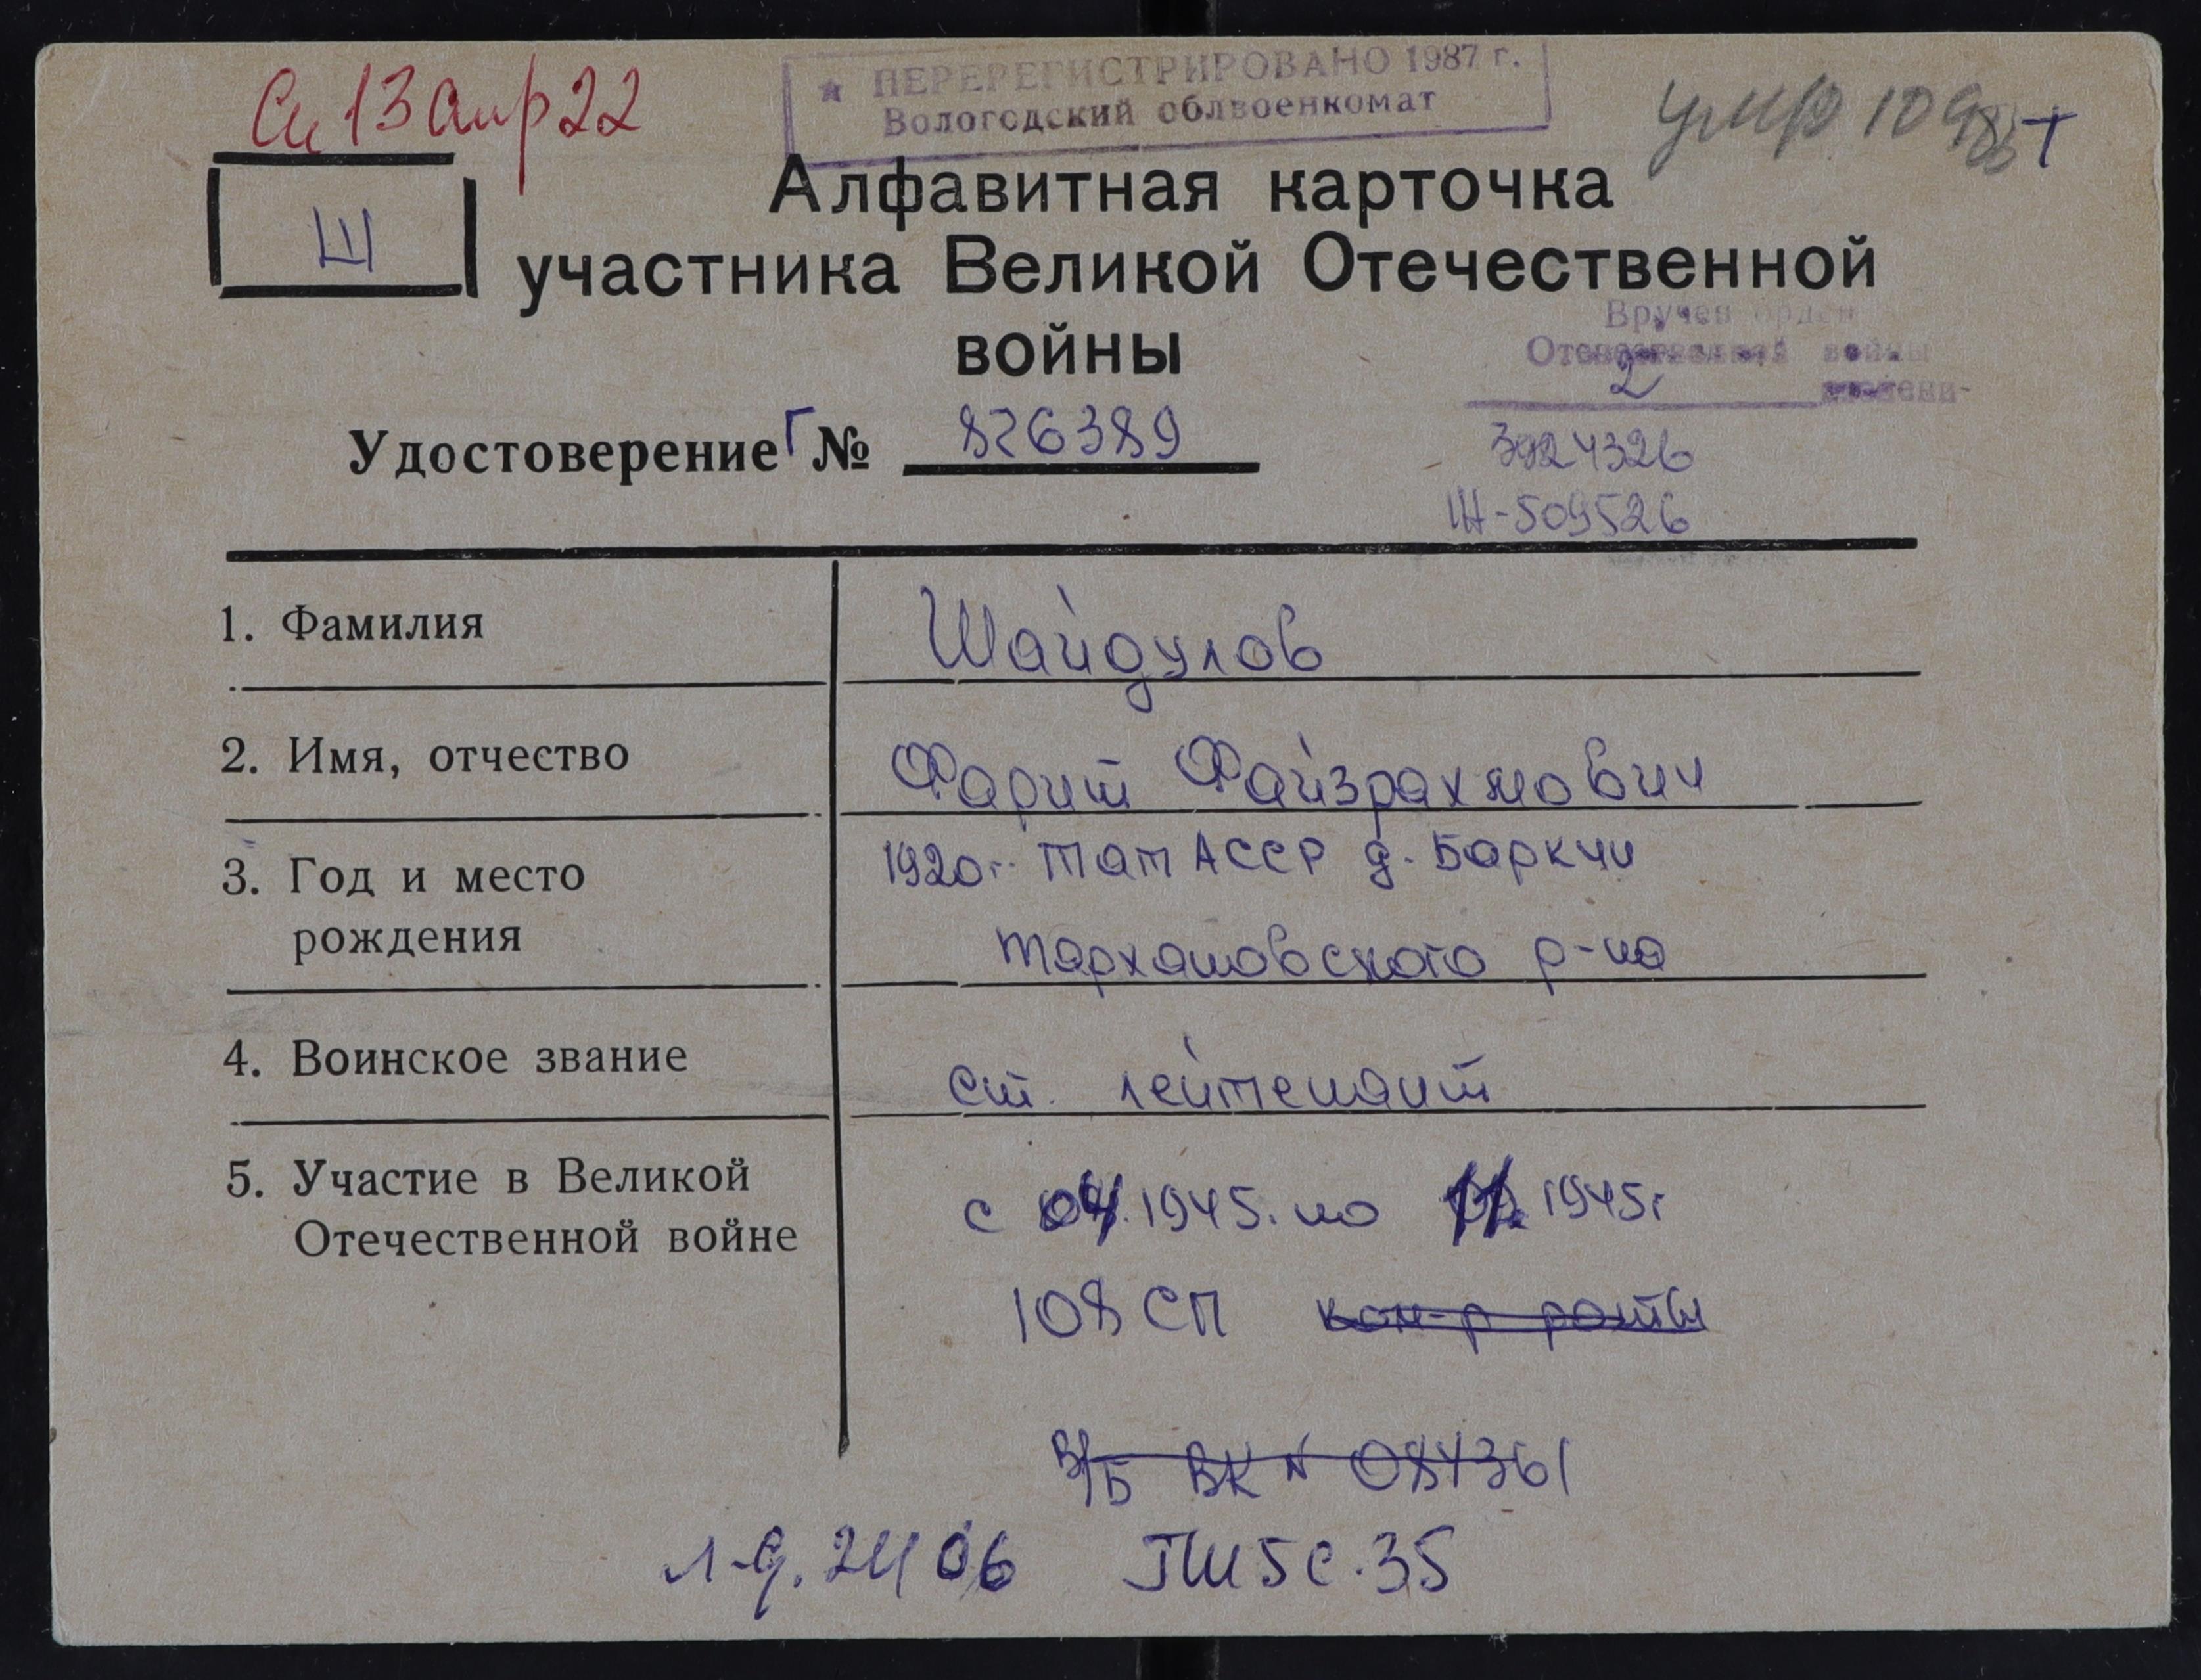 ПЕРЕРЕГИСТРИРОВАНО 1987 г.
Вологодский облвоенкомат
13 апр 22
умер
Ш
Алфавитная карточка
участника Великой Отечественной
войны
Вручен орден
Отечественной войны
2 степени
Удостоверение Г № 826389
3924326
509526
1. Фамилия Шайдулов
2. Имя, отчество Фарит Файзрахмович
3. Год и место 1920г. Тат АССР д. Баркчи
рождения Тархановского р-на
4. Воинское звание ст. лейтенант
5. Участие в Великой
Отечественной войне с 04.1945. по 11.1945г
108 СП ком-р роты
В/Б ВК № 084361
л-д. 2406 ПШ5с.35